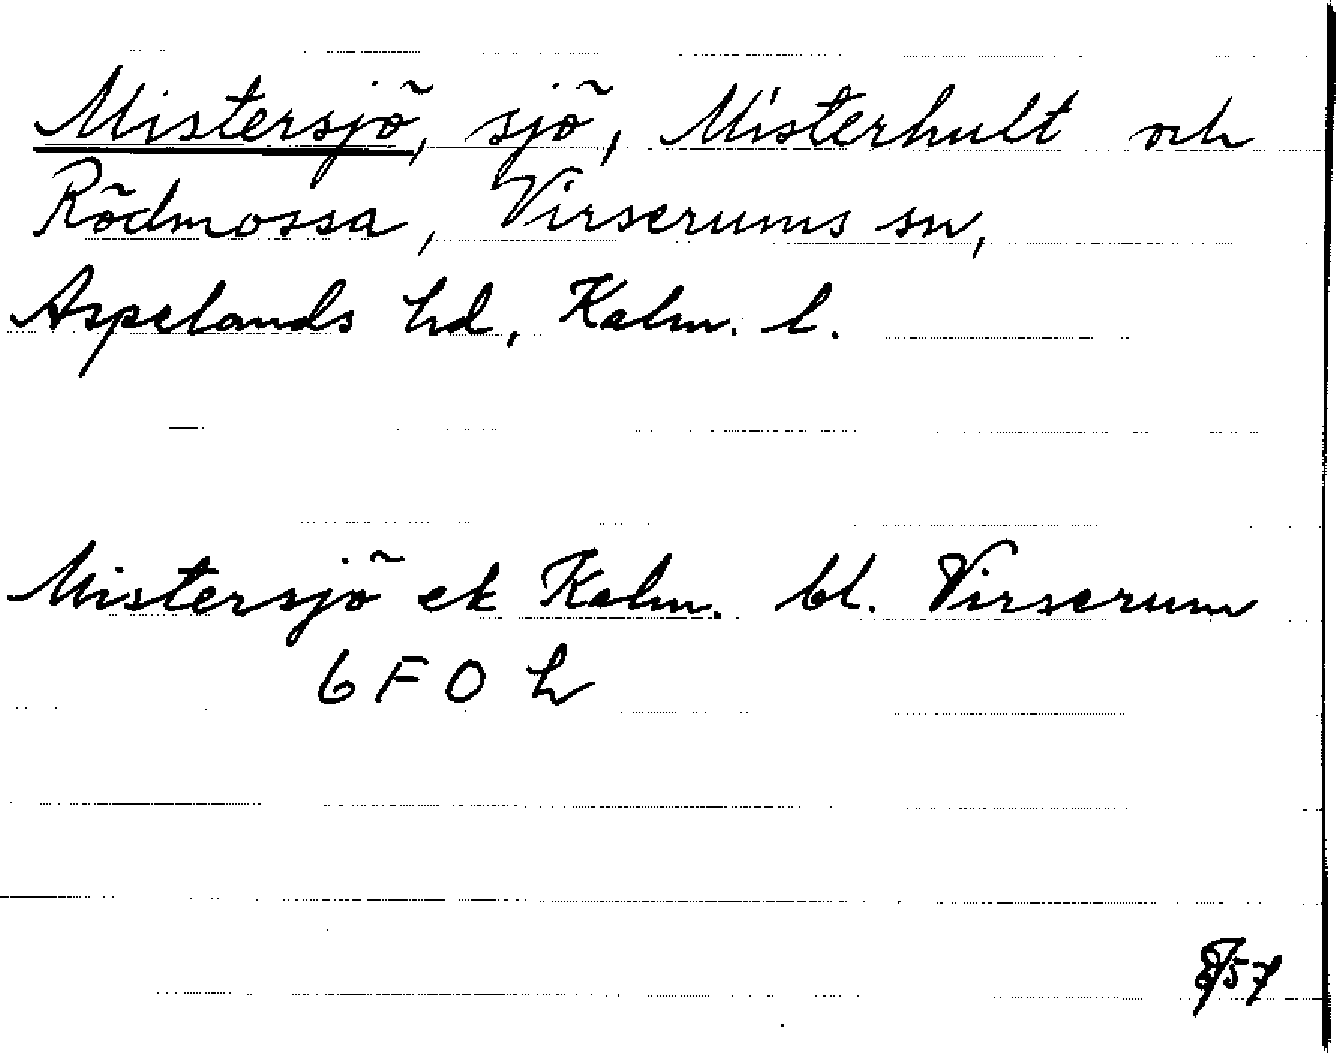 Mistersjö, sjö, Misterhult och
Rödmossa, Virserums sn,
Aspelands hd, Kalm. l.
Mistersjö ek Kalm. bl. Virserum
6 F O h